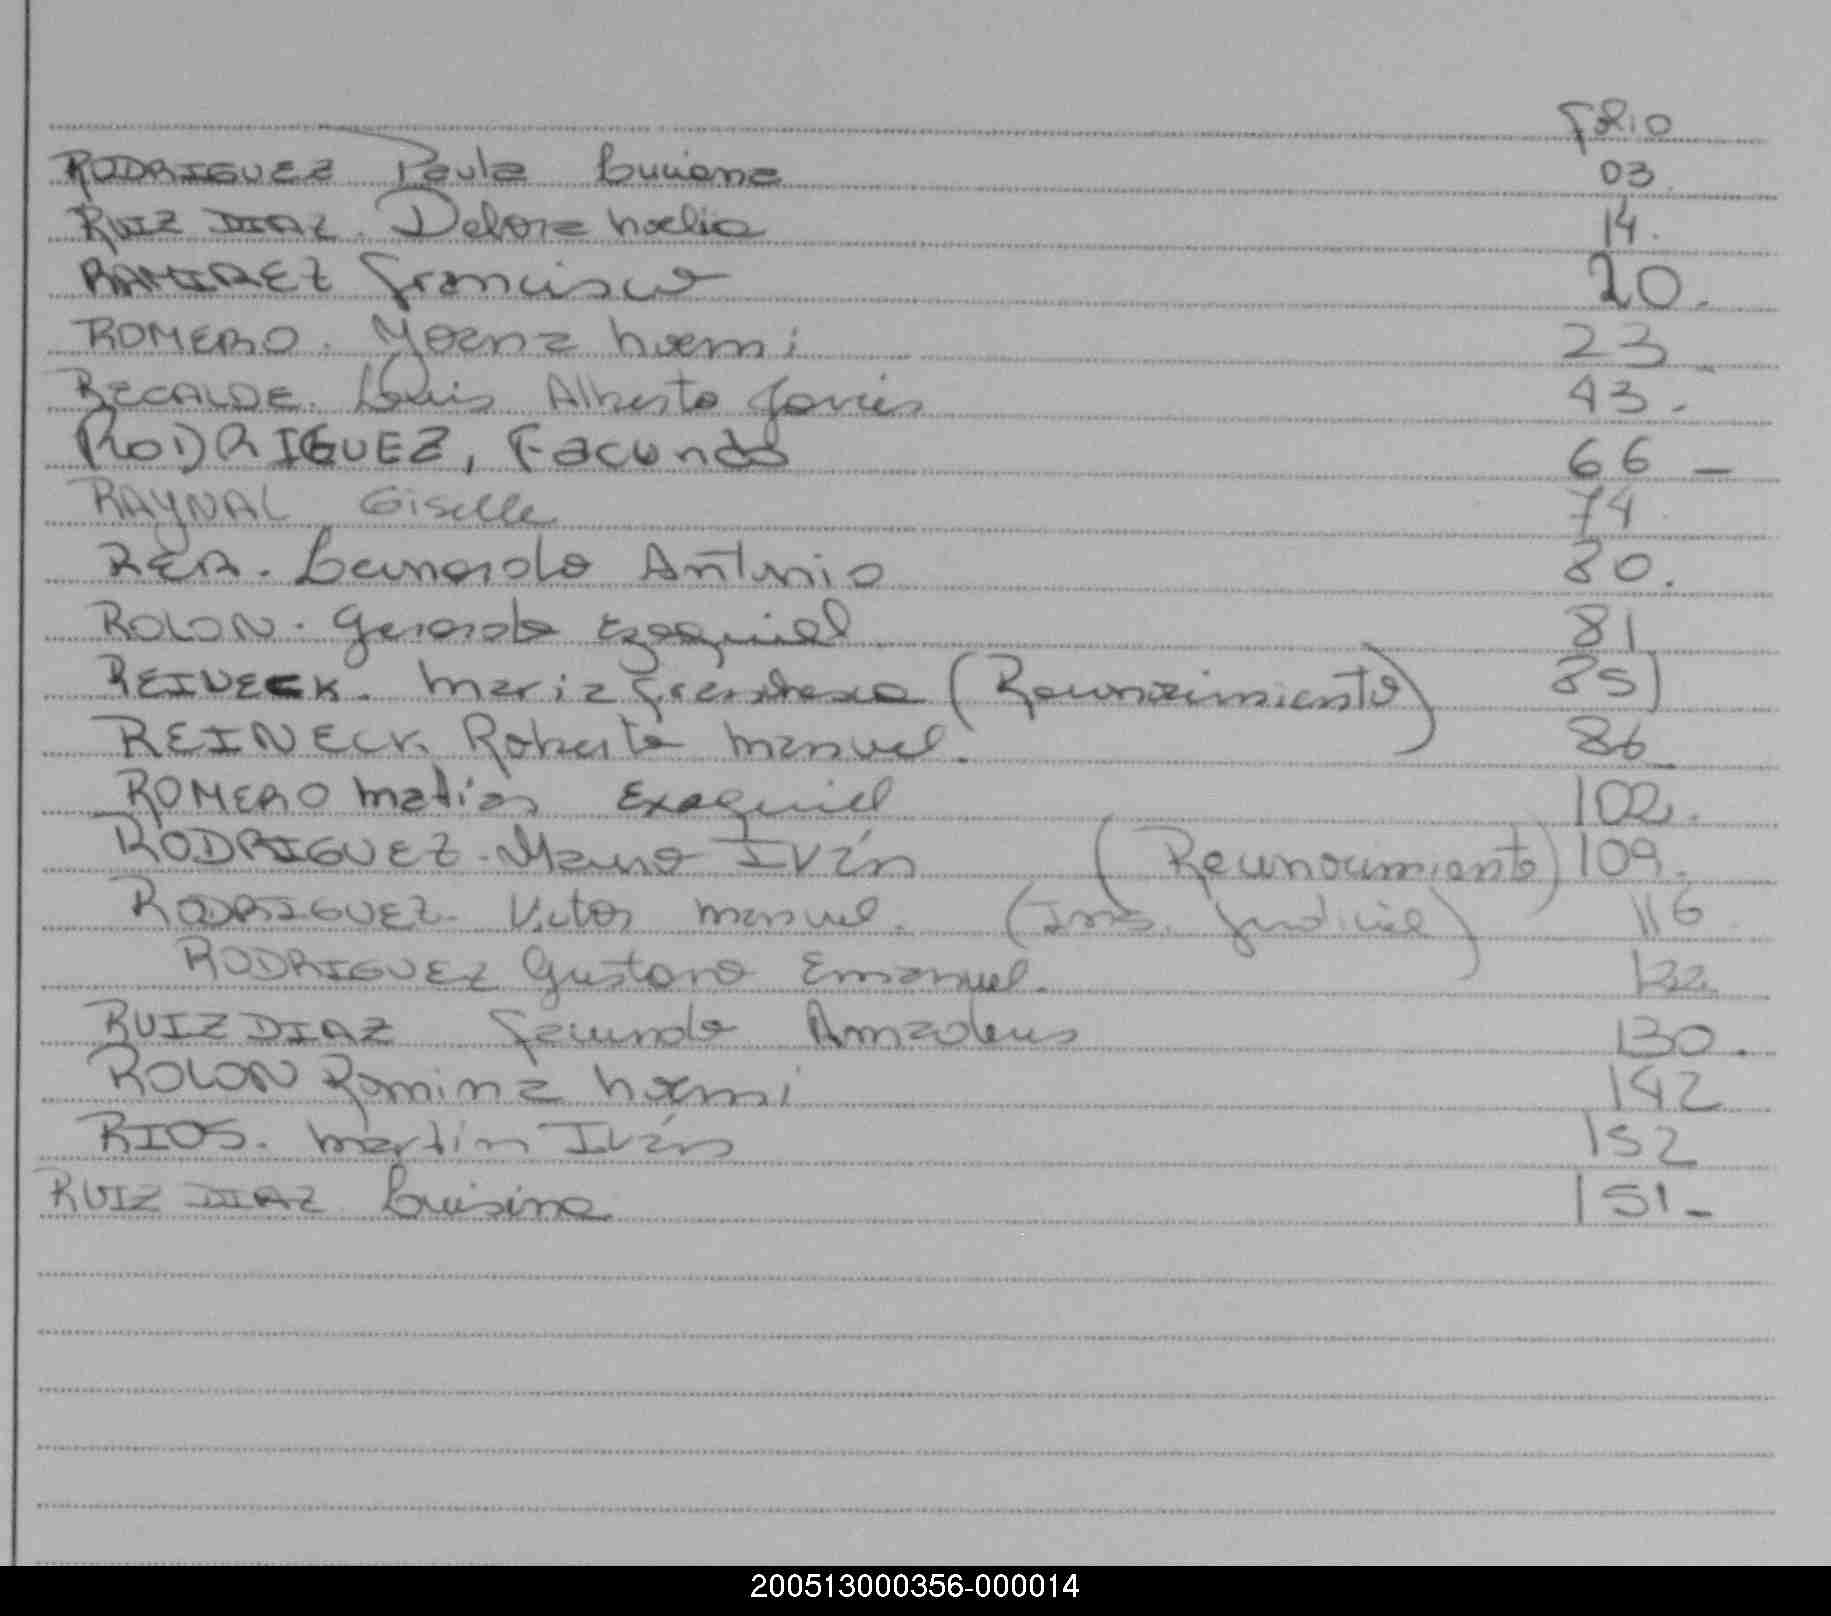 Folio
RODRIGUEZ Paula Luciana 03.
RUIZ DIAZ. Debora Noelia 14.
RAMIREZ Francisco 20.
ROMERO. Yoana Noemi 23
RECALDE. Luis Alberto Javier 43.
RODRIGUEZ, Facundo 66 -
RAYNAL Giselle 74
REA. Leonardo Antonio 80.
ROLON. Gerardo Ezequiel 81
REINECK. Maria (Reconocimiento) 85)
REINECK. Roberto Manuel. 86
ROMERO Matias Exequiel 102.
RODRIGUEZ. Mauro Iván (Reconocimiento) 109.
RODRIGUEZ. Victor Manuel. (Ins. Judicial) 116
RODRIGUEZ Gustavo Emanuel. 122
RUIZ DIAZ Facundo Amadeus 130.
ROLON Romina Noemi 142
RIOS. Martin Iván 152
RUIZ DIAZ Luisina 151-
200513000356-000014